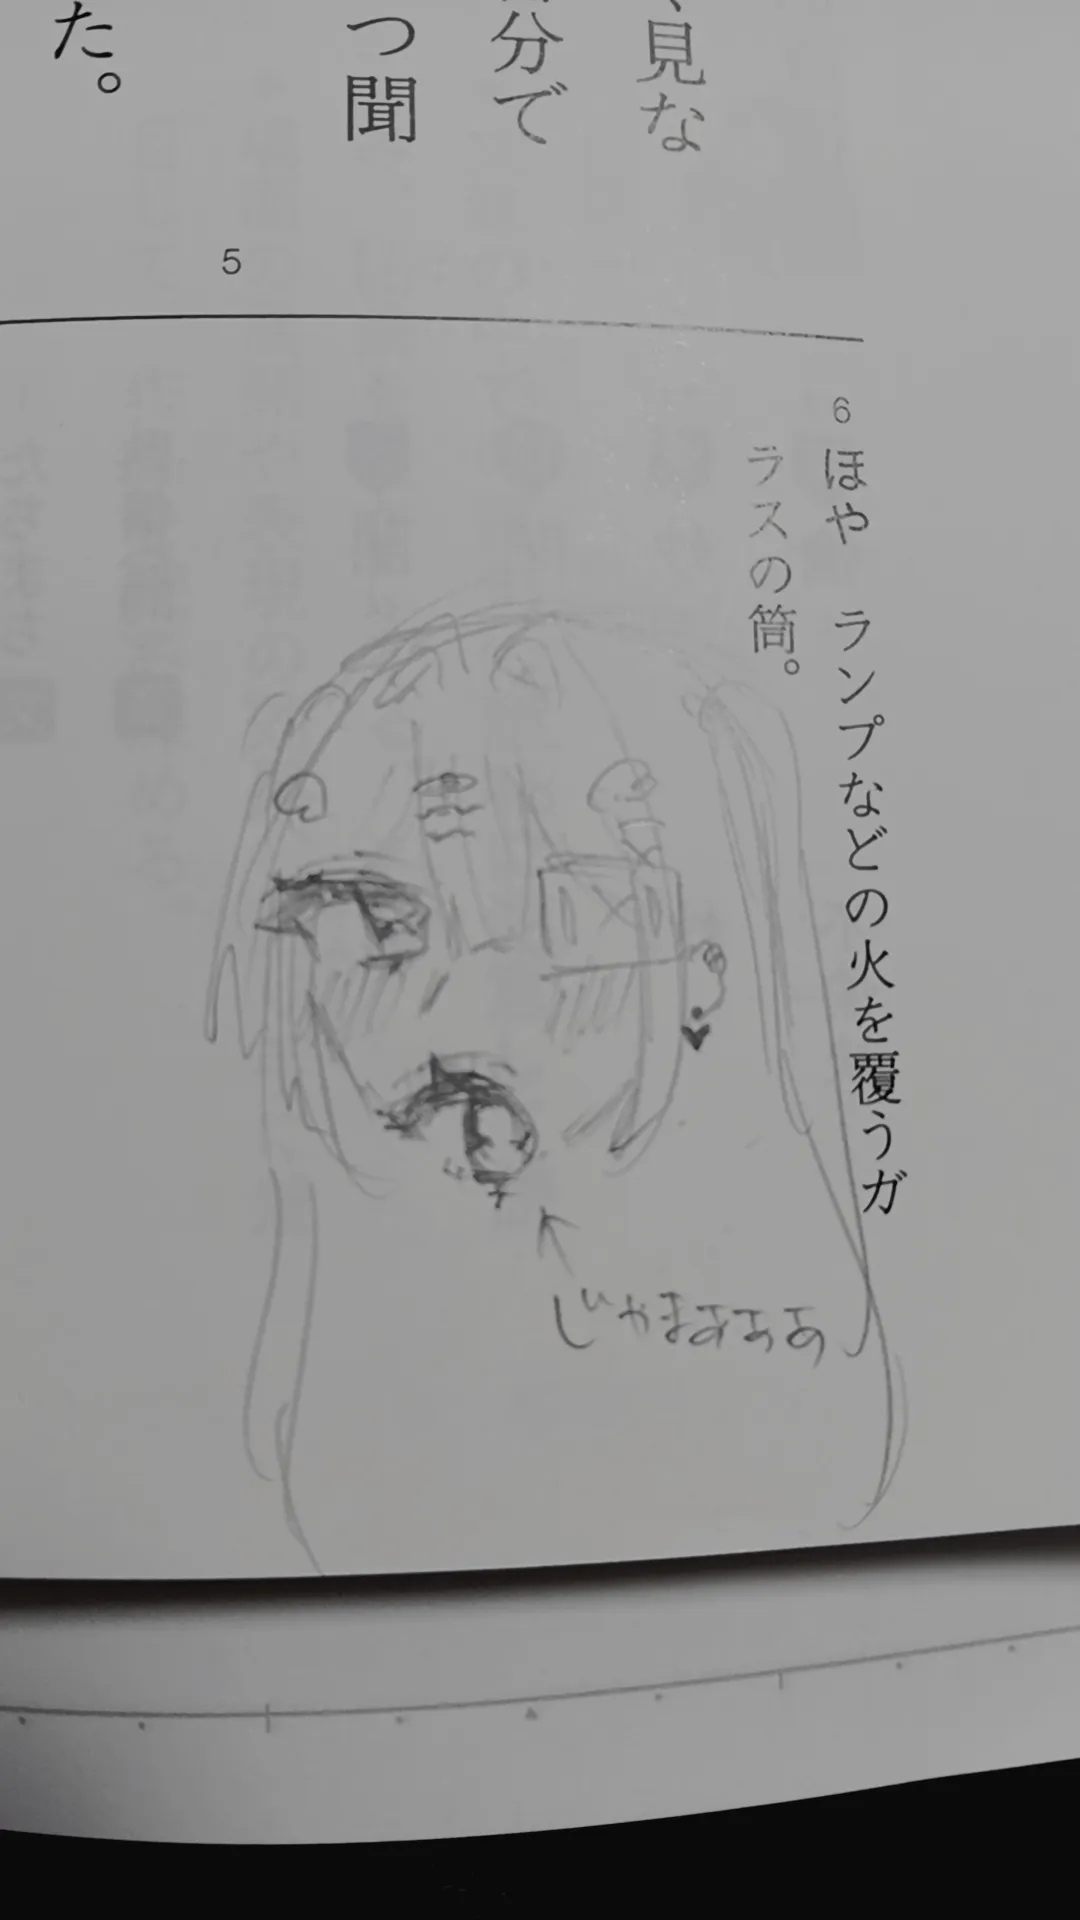 見な
分で
つ聞
た。
5
6 ほや ランプなどの火を覆うガ
ラスの筒。
じゃまぁぁぁ